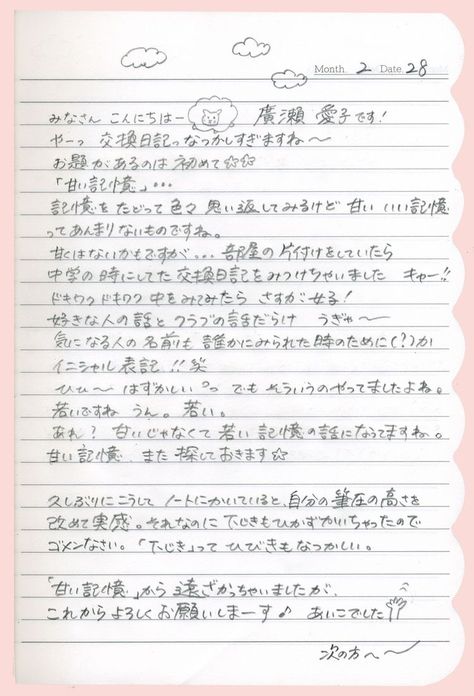 Month. 2 Date. 28
みなさん こんにちはー 廣瀬 愛子です!
やーっ 交換日記っなつかしすぎますね〜
お題があるのは初めて☆☆
「甘い記憶」…
記憶をたどって色々思い返してみるけど 甘い いい記憶
ってあんまりないものですね。
甘くはないかもですが… 部屋の片付けをしていたら
中学の時にしてた交換日記をみつけちゃいました キャー!!
ドキワク ドキワク 中をみてみたら さすが女子!
好きな人の話とクラブの話だらけ うぎゃ〜
気になる人の名前も 誰かにみられた時のために(?)か
イニシャル表記!!笑
ひぃ〜 はずかしい でも そういうのやってましたよね。
若いですね うん。若い。
あれ? 甘いじゃなくて 若い 記憶の話になってますね。
甘い記憶、また 探しておきます☆
久しぶりにこうして ノートにかいていると、自分の筆圧の高さを
改めて実感。それなのに 下じきもひかずかいちゃったので
ゴメンなさい。「下じき」って ひびきもなつかしい。
「甘い記憶」から遠ざかっちゃいましたが、
これからよろしくお願いしまーす♪ あいこでした
次の方へ〜